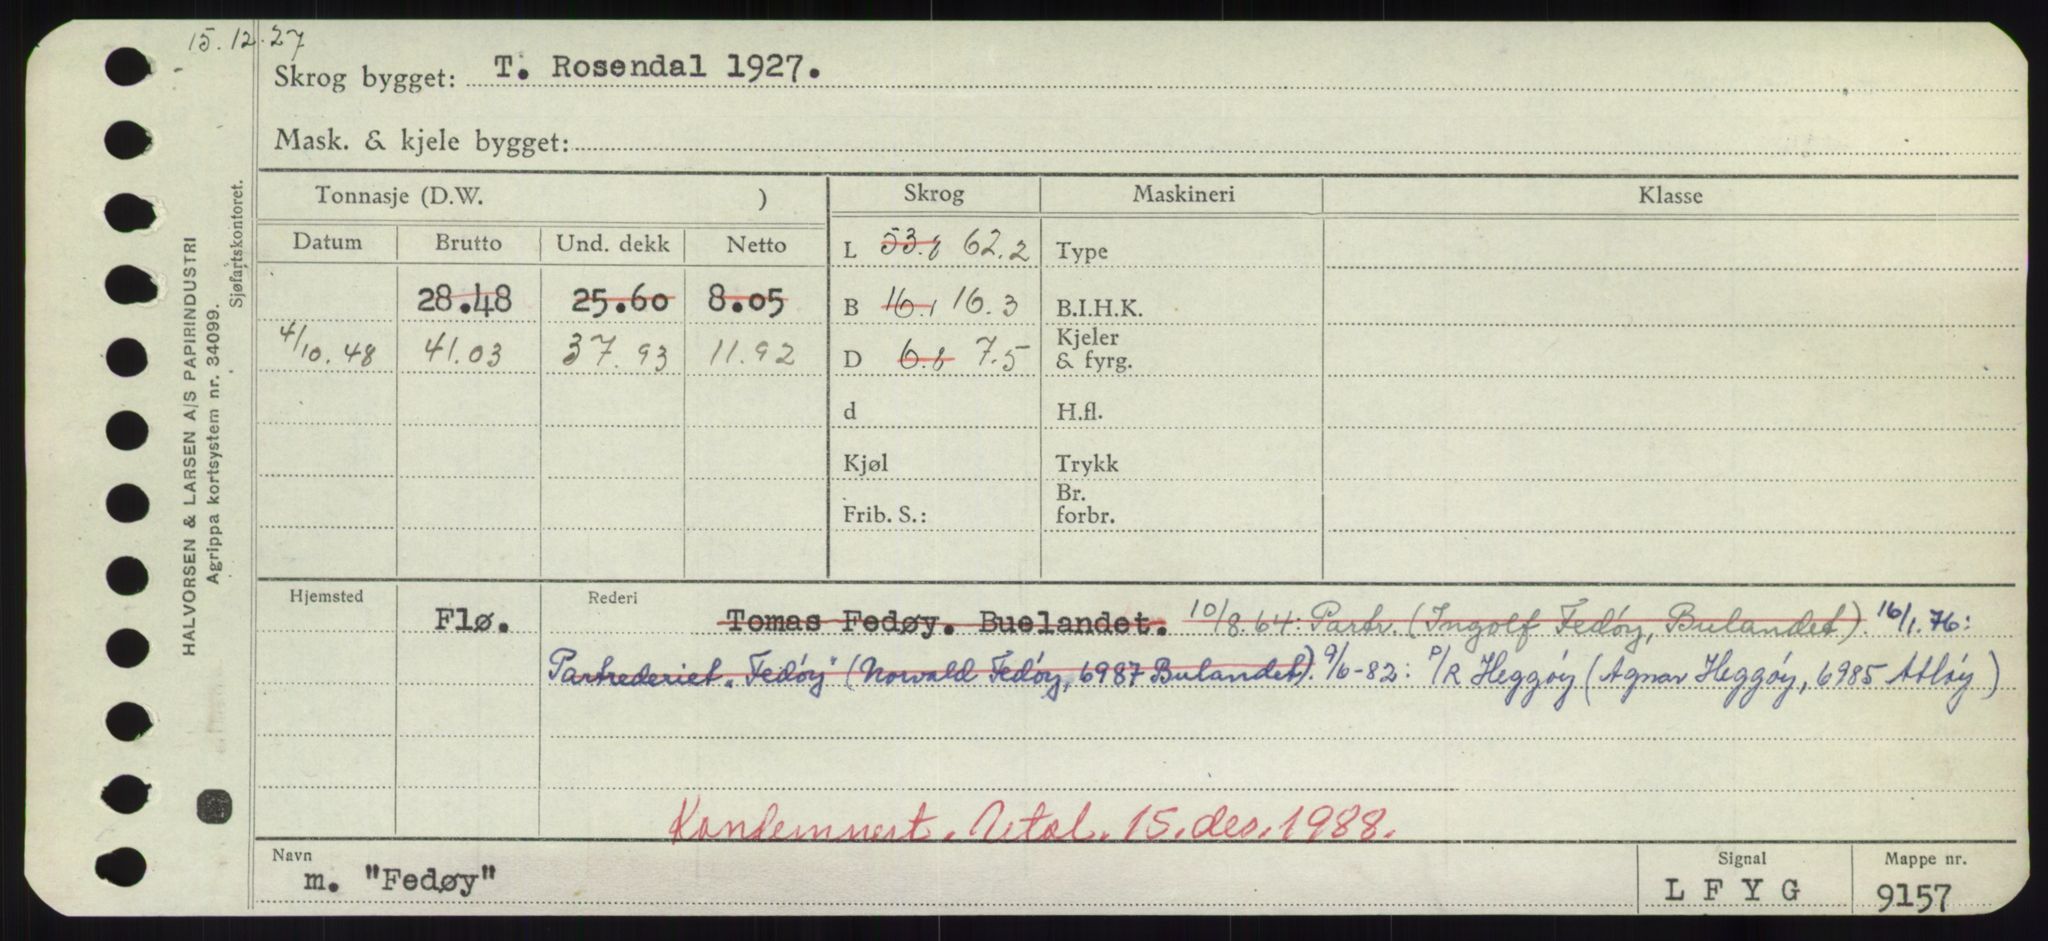 15.12.27
Skrog bygget: T. Rosendal 1927.
Mask. & kjele bygget:
Tonnasje (D.W. ) Skrog Maskineri Klasse
Datum Brutto Und. dekk Netto L 53.8 62.2 Type
28.48 25.60 8.05 B 16.1 16.3 B.I.H.K.
4/10.48 41.03 37.93 11.92 D 6.8 7.5 Kjeler & fyrg.
d H.fl.
Kjøl Trykk
Frib. S.: Br. forbr.
Hjemsted Flø. Rederi Tomas Fedøy. Buelandet. 10/8.64: Partr. (Ingolf Fedøy, Bulandet). 16/1.76:
Partrederiet "Fedøy" (Norvald Fedøy, 6987 Bulandet). 9/6-82: P/R Heggøy (Agnar Heggøy, 6985 Atløy)
Kondemnert. Utal. 15. des. 1988.
Navn m. "Fedøy" Signal L F Y G Mappe nr. 9157
HALVORSEN & LARSEN A/S PAPIRINDUSTRI
Agrippa kortsystem nr. 34099.
Sjøfartskontoret.